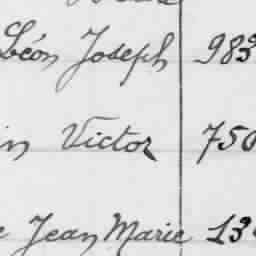 Léon Joseph 983
in Victor 750
e Jean Marie 13